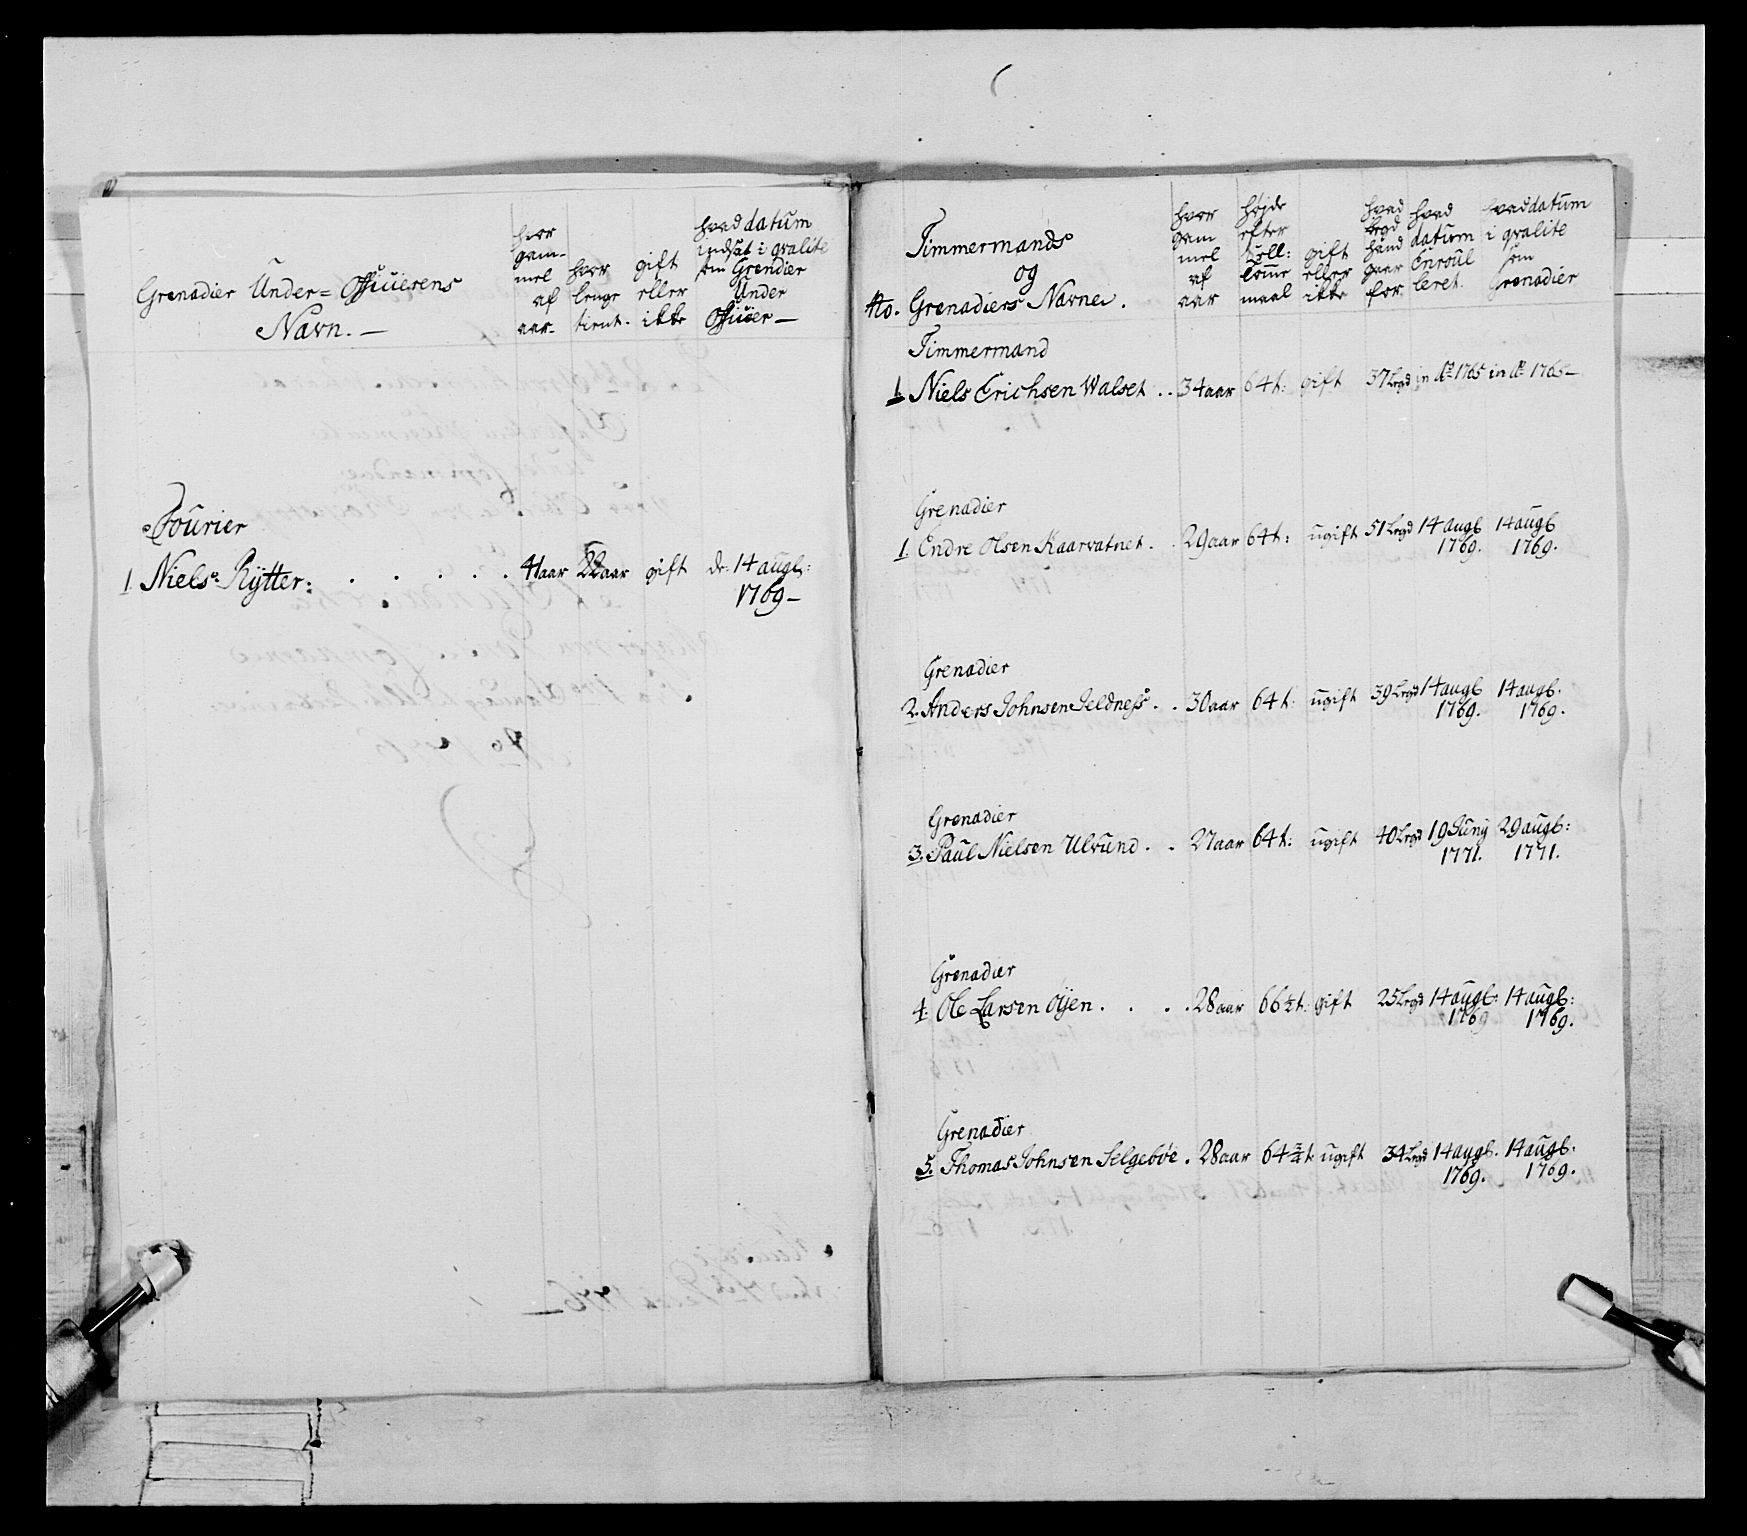 Grenadier Under= Officierens
Navn. —
hvor gam- mel af aar-
hvor lenge tient.
gift eller ikke
hvad datum indsat i qvalite som Grendier Under Officer —
Fourier
1. Niels Rÿtter: . . . . . 41 aar 22 aar gift de: 14 augl:
1769 —
Timmermands
og
No. Grenadiers Navne.
hvor gam mel af aar
højde efter Toll: Comme maal
gift eller ikke
hvad Legd hand gaar for.
hvad datum Enroul leret.
hvad datum i qvalite som Grenadier
Timmermand
1. Niels Erichsen Walset . . 34 aar 64 t: gift 37 Legd in Ao 1765 in Ao 1765 —
Grenadier
1. Endre Olsen Kaarvatnet . . 29 aar 64 t: ugift 51 Legd 14 augl 14 augl
1769. 1769.
Grenadier
2. Anders Johnsen Jeldness . . 30 aar 64 t: ugift 39 Legd 14 augl 14 augl.
1769. 1769.
Grenadier
3. Paul Nielsen Ulvund . . 27 aar 64 t: ugift 40 Legd 19 Junÿ 29 augl:
1771. 1771.
Grenadier
4. Ole Larsen Øÿen . . . . 28 aar 66 ½ t: gift 25 Legd 14 augl: 14 augl:
1769 1769.
Grenadier
5. Thomas Johnsen Selgebøe . 28 aar 64 ¾ t. ugift 34 Legd 14 augl. 14 augl.
1769. 1769.